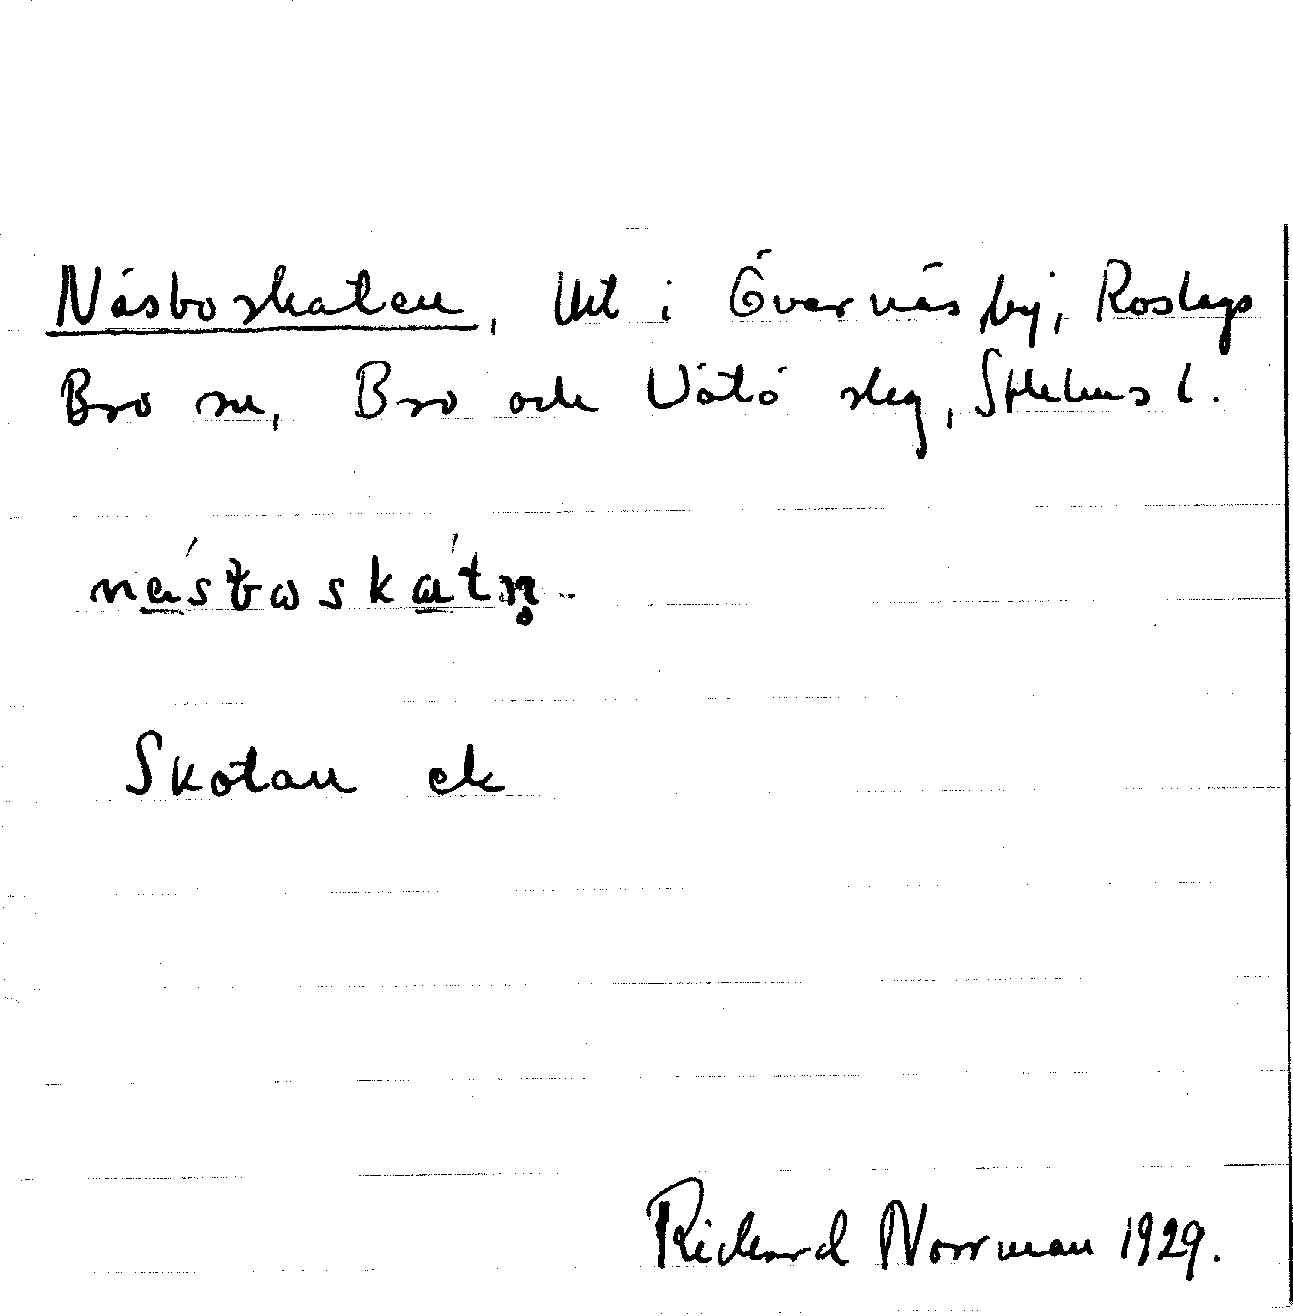 Näsboskaten, Utl i Övernäs by, Roslags
Bro sn, Bro och Vätö skg, Sthlms l.
Skötan ek
Richard Norrman 1929.